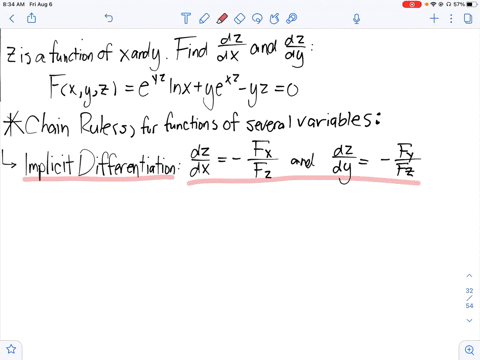 8:34 AM Fri Aug 6
57%
z is a function of x and y. Find dz/dx and dz/dy:
F(x,y,z) = e^{yz} lnx + ye^{xz} - yz = 0
*Chain Rule(s) for functions of several variables:
↳ Implicit Differentiation: dz/dx = - Fx/Fz and dz/dy = - Fy/Fz
32
/
54